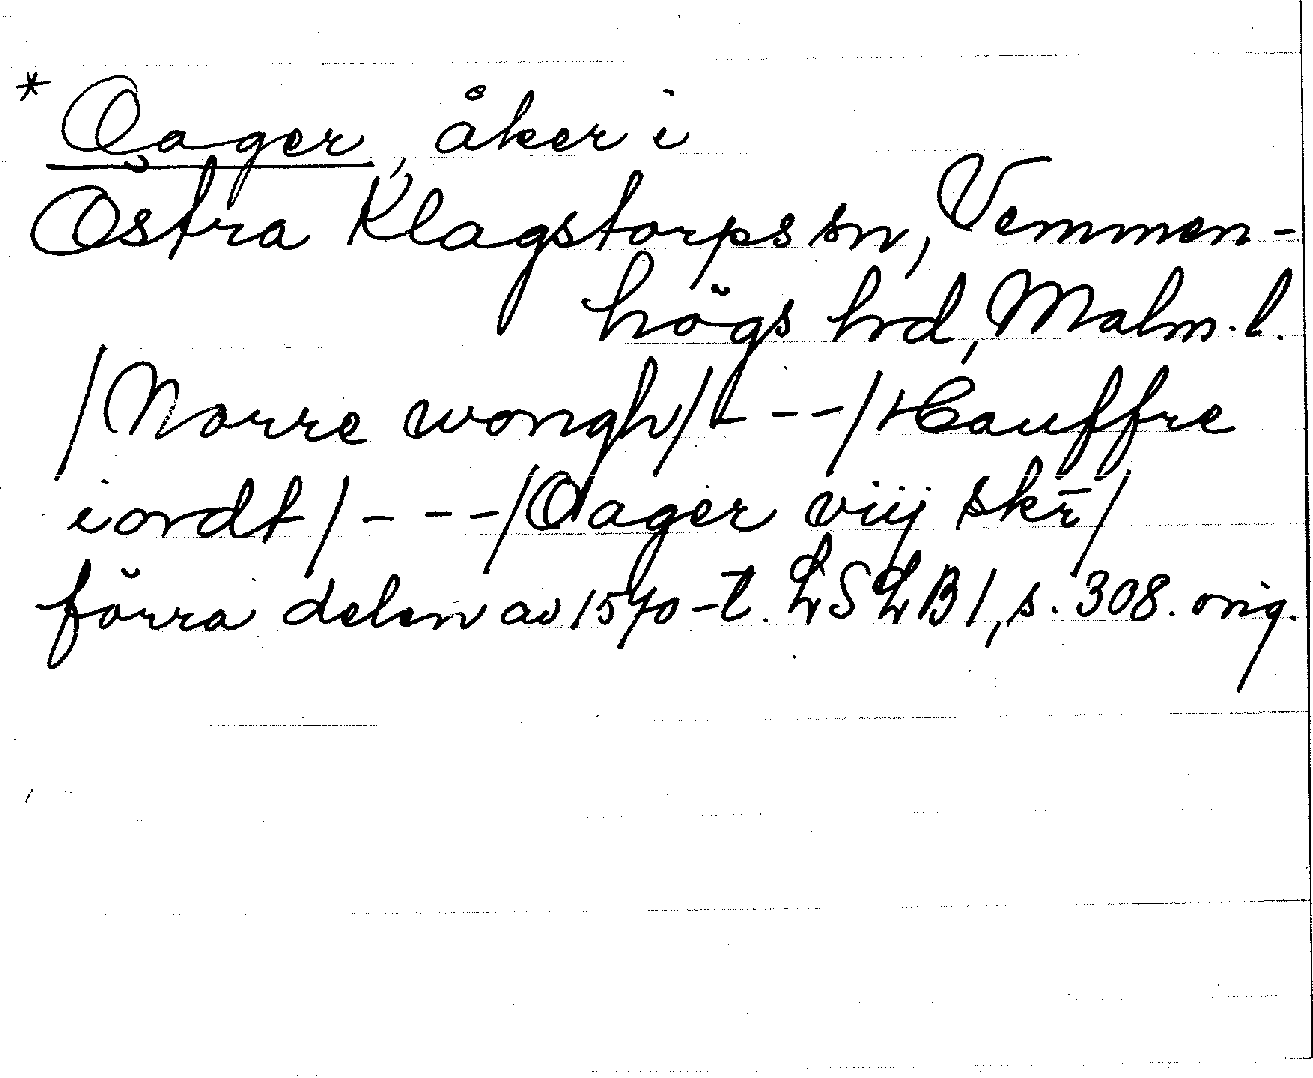 * Oager, åker i
Östra Klagstorps sn, Vemmen-
högs hrd, Malm. l.
/Norre wongh/ - - - /Hauffre
iordt/ - - - /Oager viij skr̄/
förra delen av 1570-t. LSLB 1, s. 308. orig.